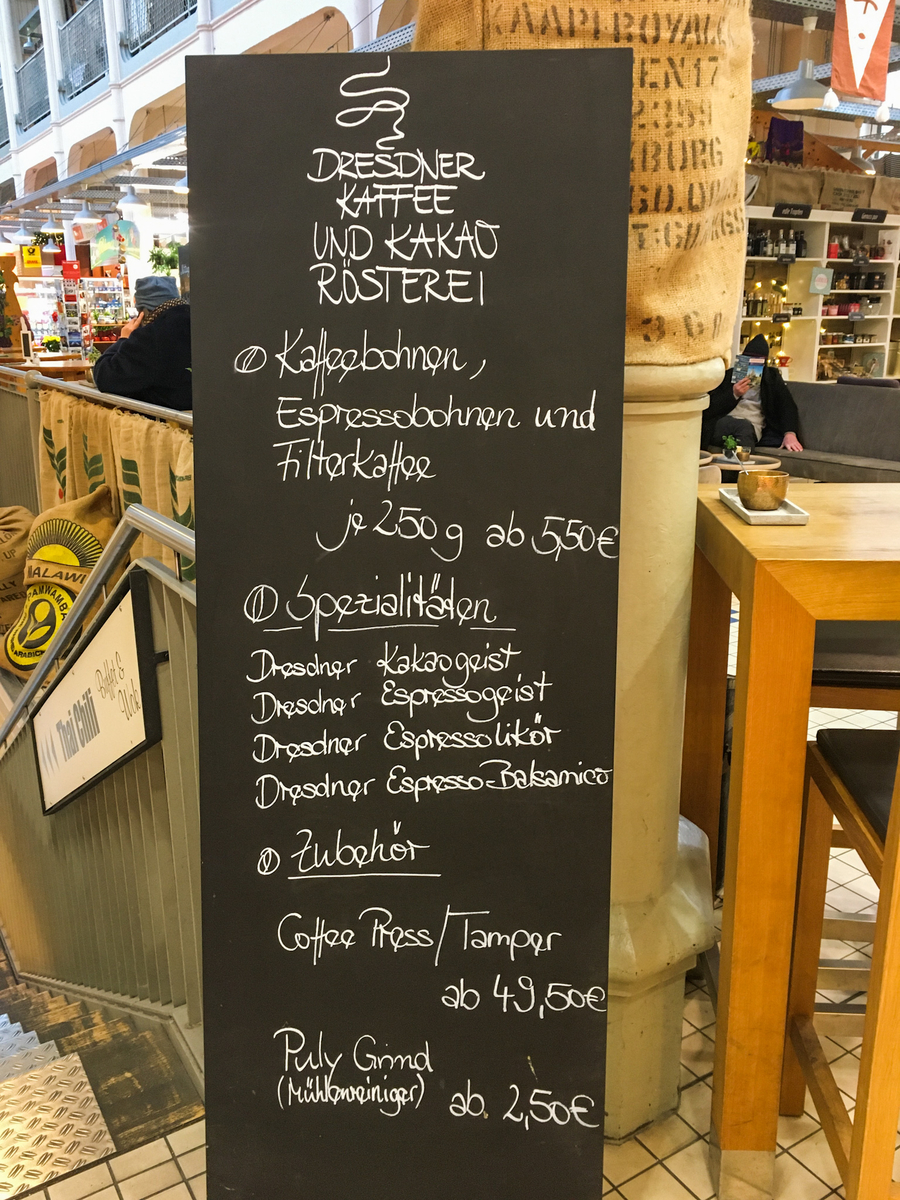 DRESDNER
KAFFEE
UND KAKAO
RÖSTEREI
Kaffeebohnen,
Espressobohnen und
Filterkaffee
je 250g ab 5,50€
Spezialitäten
Dresdner Kakaogeist
Dresdner Espressogeist
Dresdner Espressolikör
Dresdner Espresso-Balsamico
Zubehör
Coffee Press/Tamper
ab 49,50€
Puly Grind
(Mühlenreiniger) ab. 2,50€
KAAPI ROYAL
MALAWI
Thai Chili
Buffet &
Wok